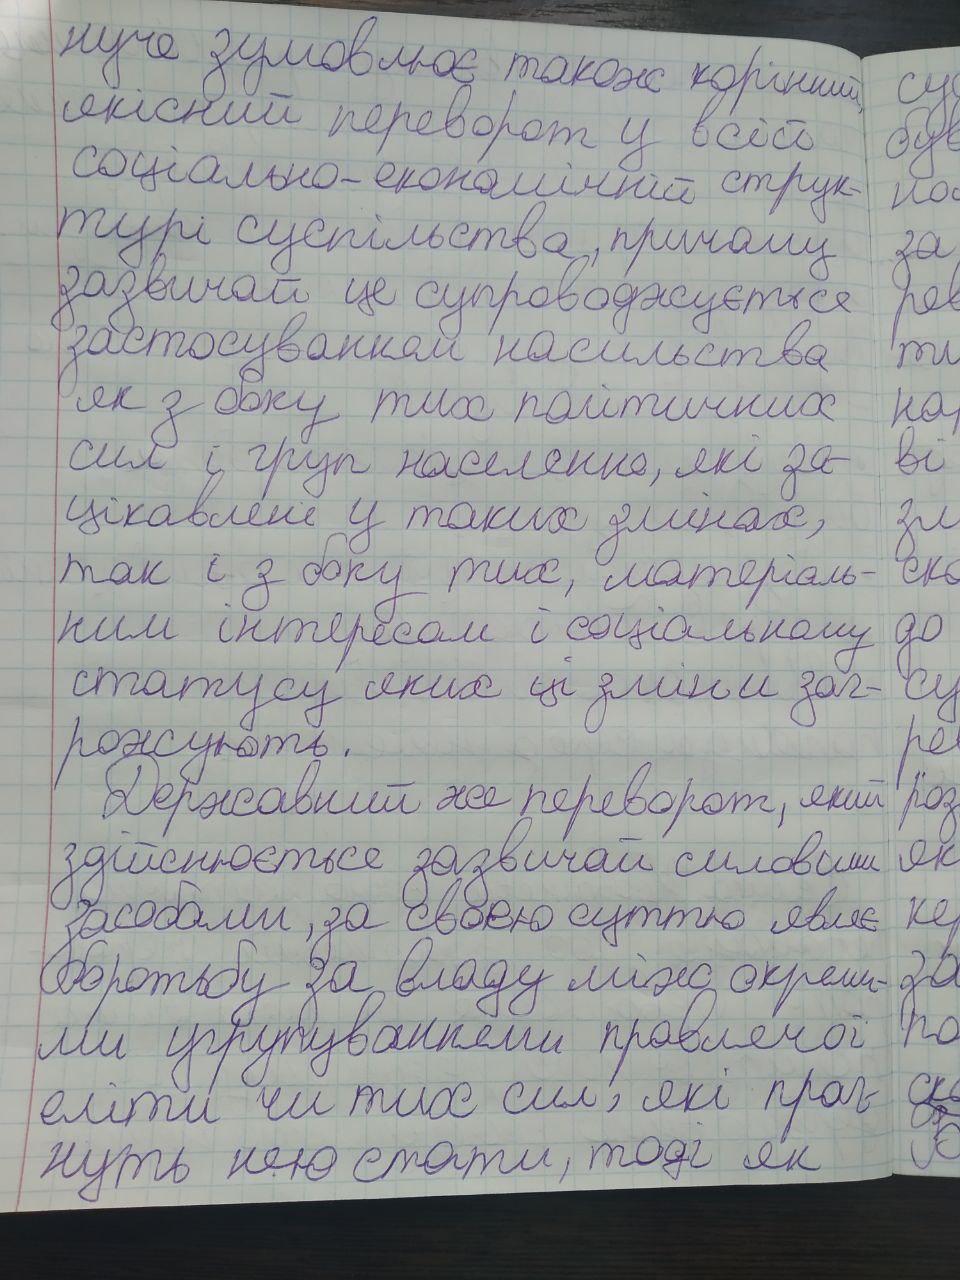 нуче зумовлює також корінний,
якісний переворот у всій
соціально-економічній струк-
турі суспільства, причому
зазвичай це супроводжується
застосуванням насильства
як з боку тих політичних
сил і груп населення, які за-
цікавлені у таких змінах,
так і з боку тих, матеріаль-
ним інтересам і соціальному
статусу яких ці зміни заг-
рожують.
Державний же переворот, який
здійснюється зазвичай силовими
засобами, за своєю суттю являє
боротьбу за владу між окреми-
ми угрупуваннями правлячої
еліти чи тих сил, які праг-
нуть нею стати, тоді як
за
ві
до
як